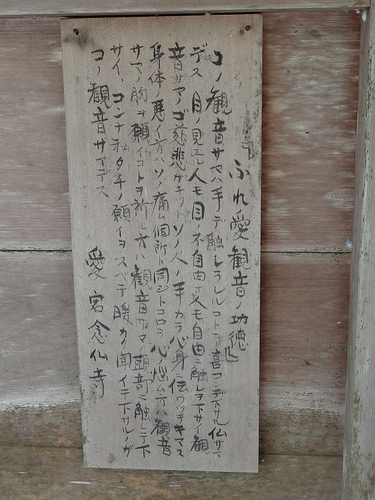 ふれ愛観音ノ功徳
コノ観音サマハ手デ触レラレルコトヲ喜コンデ下サル仏サマ
デス 目ノ見エル人モ目ノ不自由ナ人モ自由ニ触レテ下サイ観
音サマノゴ慈悲ガキットソノ人ノ手カラ心身ニ伝ワッテキマス
身体ノ悪イ方ハソノ痛ム個所ト同ジトコロヲ心悩ム方ハ観音
サマノ胸ヲ願イゴトヲ祈ル方ハ観音サマノ 音ニ触レテ下
サイ、コンナ私タチノ願イヲスベテ暖カク聞イテ下サルノガ
コノ観音サマデス
愛宕念仏寺